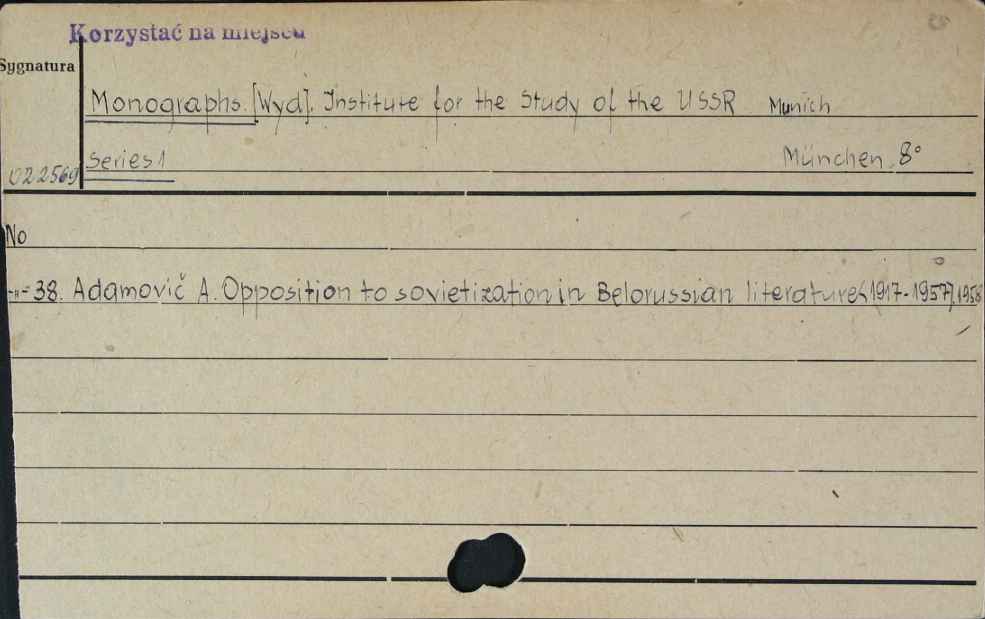 Korzystać na miejscu
Sygnatura
Monographs. [Wyd]. Institute for the Study of the USSR Munich
Series 1 München, 8°
022569
No
-"- 38. Adamovič A. Opposition to sovietization in Belorussian literature (1917-1957). 1958